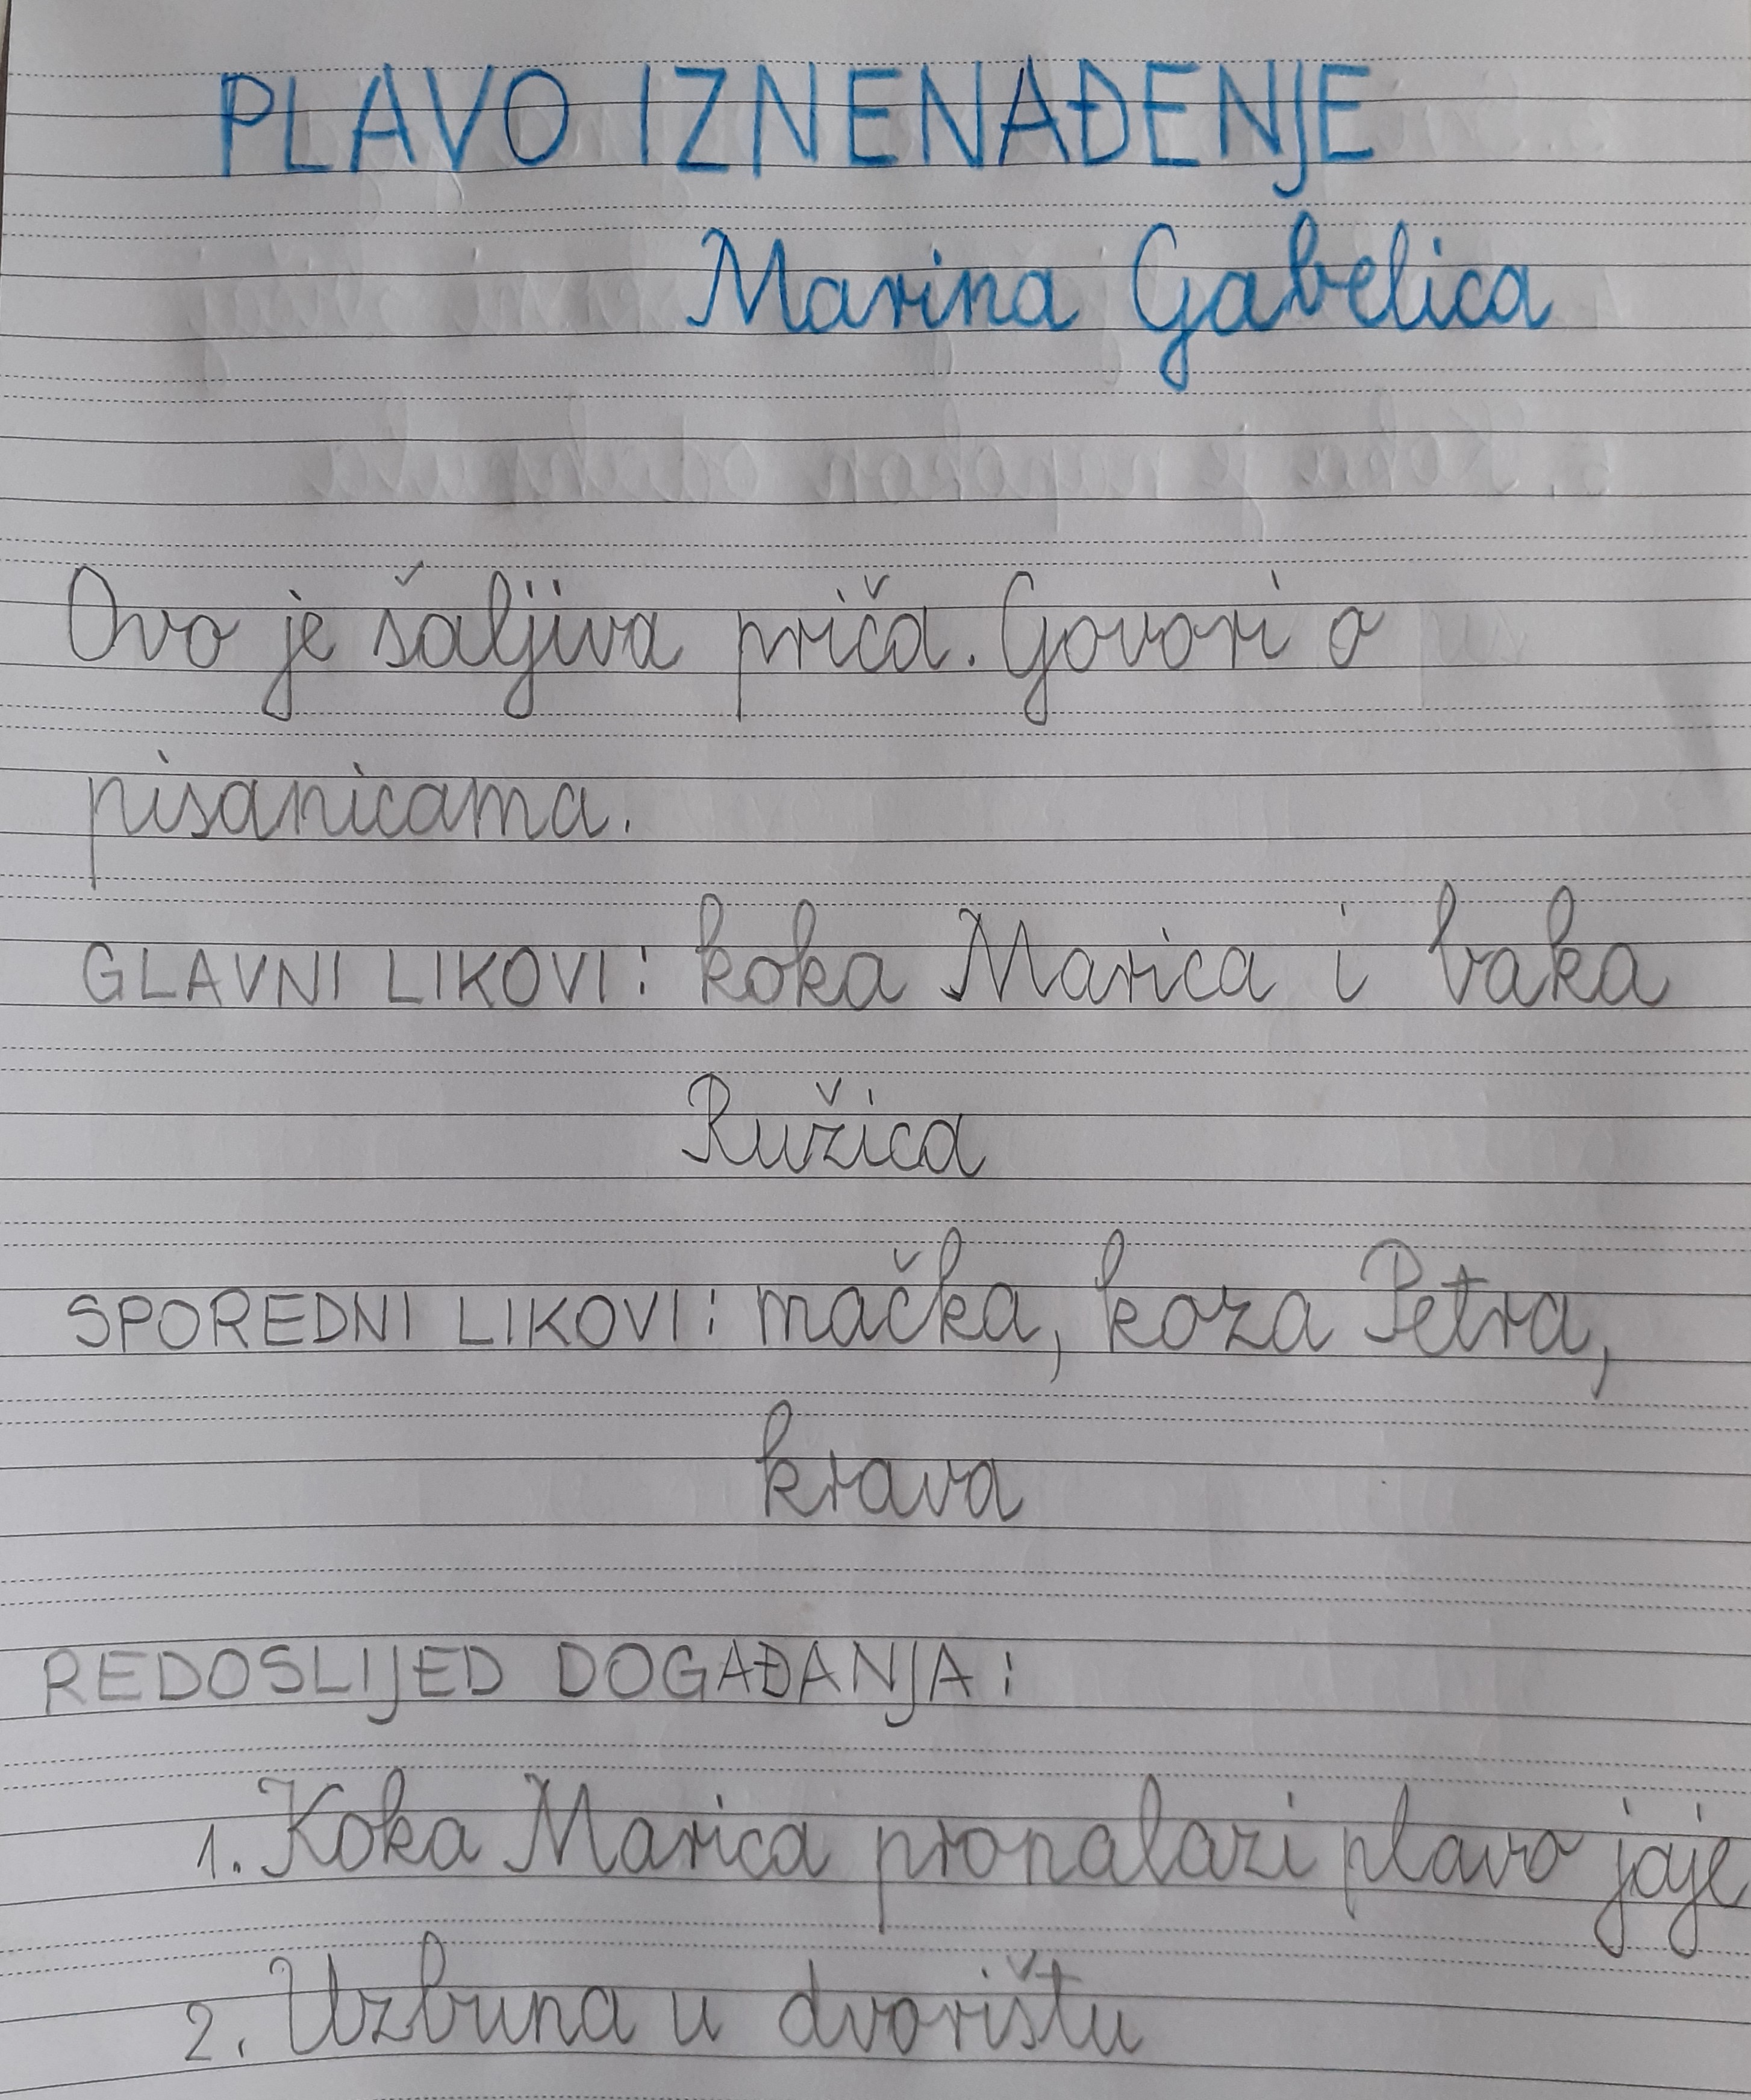 PLAVO IZNENAĐENJE
Marina Gabelica
Ovo je šaljiva priča. Govori o
pisanicama.
GLAVNI LIKOVI: koka Marica i baka
Ružica
SPOREDNI LIKOVI: mačka, koza Petra,
krava
REDOSLIJED DOGAĐANJA:
1. Koka Marica pronalazi plavo jaje
2. Uzbuna u dvorištu